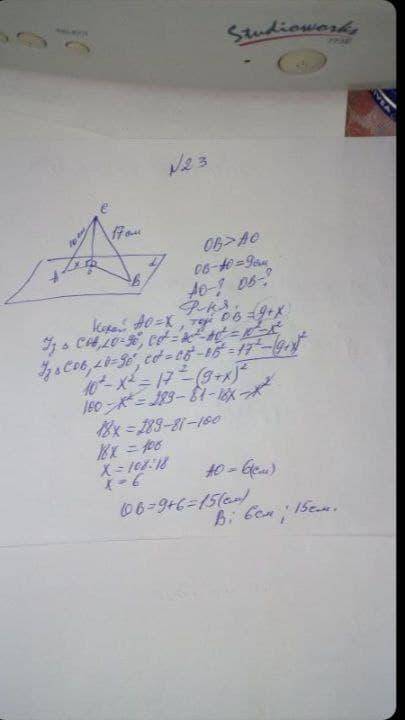 Studioworks
№23
C
10см
17см
A
x
O
B
α
OB > AO
OB - AO = 9см
AO - ? OB - ?
Р-ня.
Нехай AO = x, тоді OB = (9+x)
CO² = AC² - AO² = 10² - x²
Із Δ COB, ∠O = 90°, CO² = CB² - OB² = 17² - (9+x)²
10² - x² = 17² - (9+x)²
100 - x² = 289 - 81 - 18x - x²
18x = 289 - 81 - 100
18x = 108
x = 108:18
x = 6
AO = 6(см)
OB = 9+6 = 15(см)
В: 6см; 15см.